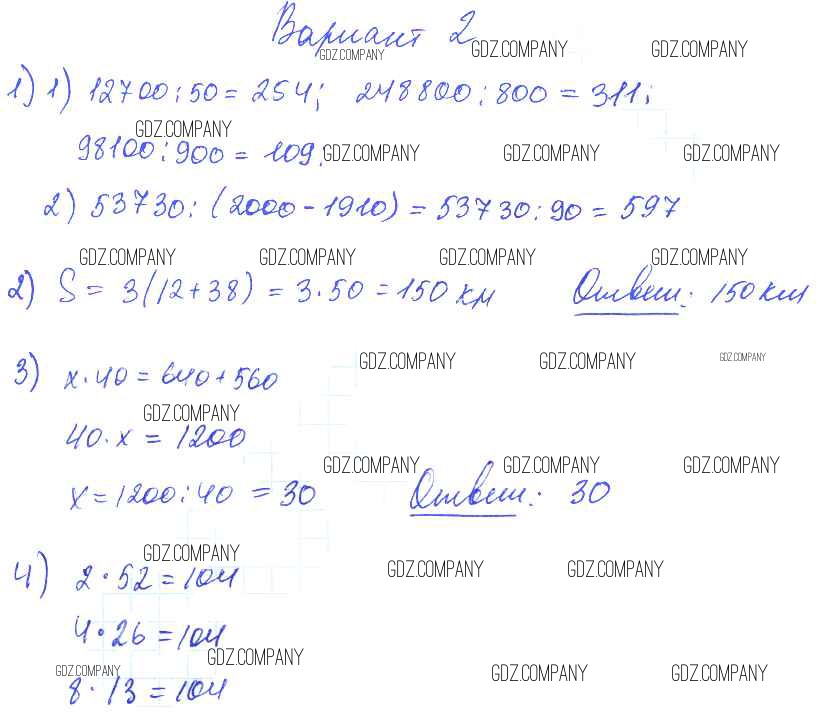 Вариант 2
GDZ.COMPANY GDZ.COMPANY GDZ.COMPANY
1) 1) 12700:50 = 254; 248800:800 = 311;
GDZ.COMPANY
98100:900 = 109; GDZ.COMPANY GDZ.COMPANY GDZ.COMPANY
2) 53730:(2000-1910) = 53730:90 = 597
GDZ.COMPANY GDZ.COMPANY GDZ.COMPANY GDZ.COMPANY
2) S = 3(12+38) = 3·50 = 150 км Ответ: 150 км
GDZ.COMPANY GDZ.COMPANY GDZ.COMPANY
3) x·40 = 640+560
GDZ.COMPANY
40·x = 1200
GDZ.COMPANY GDZ.COMPANY GDZ.COMPANY
x = 1200:40 = 30 Ответ: 30
GDZ.COMPANY GDZ.COMPANY GDZ.COMPANY
4) 2·52 = 104
4·26 = 104
GDZ.COMPANY GDZ.COMPANY GDZ.COMPANY GDZ.COMPANY
8·13 = 104